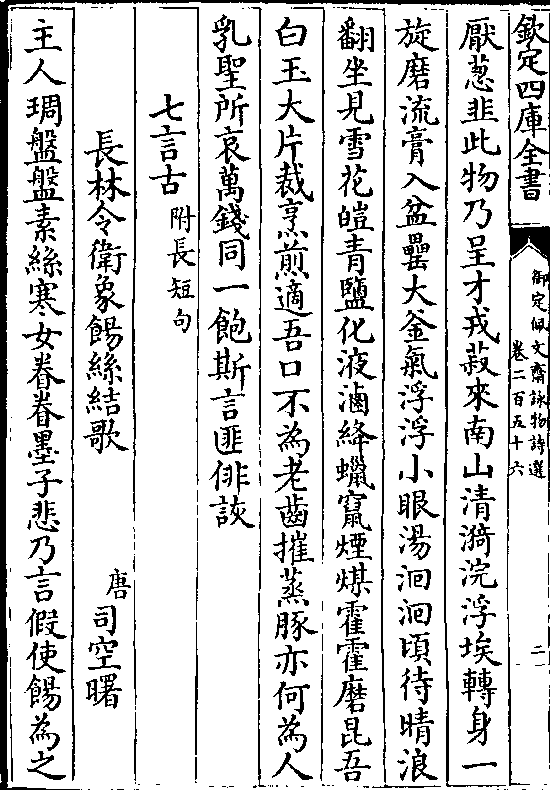 欽定四庫全書
御定佩文齋詠物詩選
卷二百五十六
二
厭葱韭此物乃呈才戎菽來南山清漪浣浮埃轉身一
旋磨流膏入盆罍大釜氣浮浮小眼湯洄洄頃待晴浪
翻坐見雪花皚青鹽化液滷絳蠟竄煙煤霍霍磨昆吾
白玉大片裁烹煎適吾口不為老齒摧蒸豚亦何為人
乳聖所哀萬錢同一飽斯言匪俳詼
七言古附長短句
長林令衛象餳絲結歌
唐司空曙
主人琱盤盤素絲寒女眷眷墨子悲乃言假使餳為之